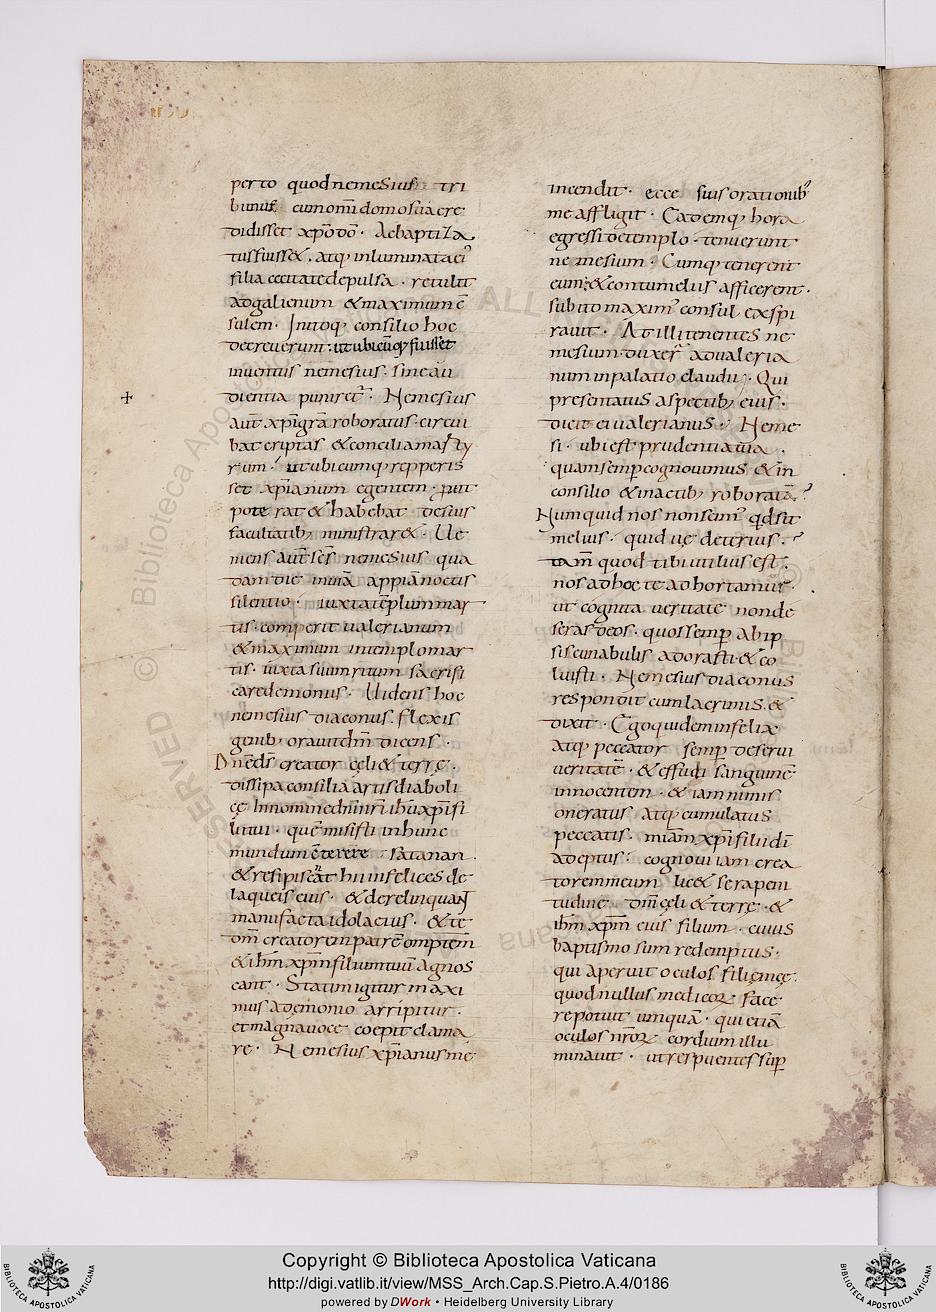 perto quod nemesius tri
bunus cum om̄i domo sua cre
didisset xp̄o dō. Ac baptiza
tus fuisset. atq; inluminata ei'
filia cecitate depulsa. retulit
ad galienum & maximum c̄
sulem. Initoq; consilio hoc
decreverunt. ut ubicūq; fuisset
inventus nemesius. sine au
dientia puniret᷑. Nemesius
aut̄ xp̄i gr̄a roboratus. circui
bat criptas & concilia marty
rum. ut ubicumq; repperis
set xp̄ianum egentem. put
poterat & habebat de suis
facultatib; ministrar&. Ue
niens aut̄ sc̄s nemesius qua
dam die in uiā appia noctis
silentio. iuxta tēplum mar
tis. comperit ualerianum
& maximum in templo mar
tis. iuxta suum ritum sacrifi
care demoniis. Uidens hoc
nemesius diaconus. flexis
genib; orauit dn̄m dicens.
Dn̄e ds̄ creator cęli & terrę.
dissipa consilia artis diaboli
cę In nomine dn̄i nr̄i ih̄u xp̄i fi
lii tui. quē misisti in hunc
mundum cōterere satanan.
& resipiscāt hii infelices de
laqueis eius. & derelinquant
manufacta idola eius. & te
om̄ creatorem patrē omptem
& ih̄m xp̄m filium tuū agnos
cant. Statim igitur maxi
mus a demonio arripitur.
et magna uoce coepit clama
re. Nemesius xp̄ianus me
incendit. ecce suis orationib;
me affligit. Eademq; hora
egressi de templo. tenuerunt
nemesium. Cumq; tenerent
eum. & contumeliis afficerent.
subito maxim' consul exspi
rauit. At illi tenentes ne
mesium. duxer̄ ad ualeria
num in palatio claudii. Qui
presentatus aspectib; eius.
dicit ei ualerianus. Neme
si. ubi est prudentia tua.
quam semp cognouimus & in
consilio & in actib; roborata?
Numquid nos non sem' qd sit
melius. quid uę deterius.
tam̄ quod tibi utilius est.
nos ad hoc te adhortamur.
ut cognita ueritate non de
seras deos. quos semp ab ip
sis cunabulis adorasti. & co
luisti. Nemesius diaconus
respondit cum lacrimis. &
dixit. Ego quidem infelix
atq; peccator semp deserui
ueritatē. & effudi sanguinē
innocentem. & iam nimis
oneratus atq; cumulatus
peccatis. mīam xp̄i filii dī
adeptus. cognoui iam crea
torem meum lic& sera peni
tudine. dn̄m cęli & terrę. &
ih̄m xp̄m eius filium. cuius
baptismo sum redemptus.
qui aperuit oculos filię meę.
quod nullus medicorum face
re potuit umquā. qui etiā
oculos nr̄orum cordium illu
minauit. ut respuentes sup
Copyright © Biblioteca Apostolica Vaticana
http://digi.vatlib.it/view/MSS_Arch.Cap.S.Pietro.A.4/0186
powered by DWork • Heidelberg University Library